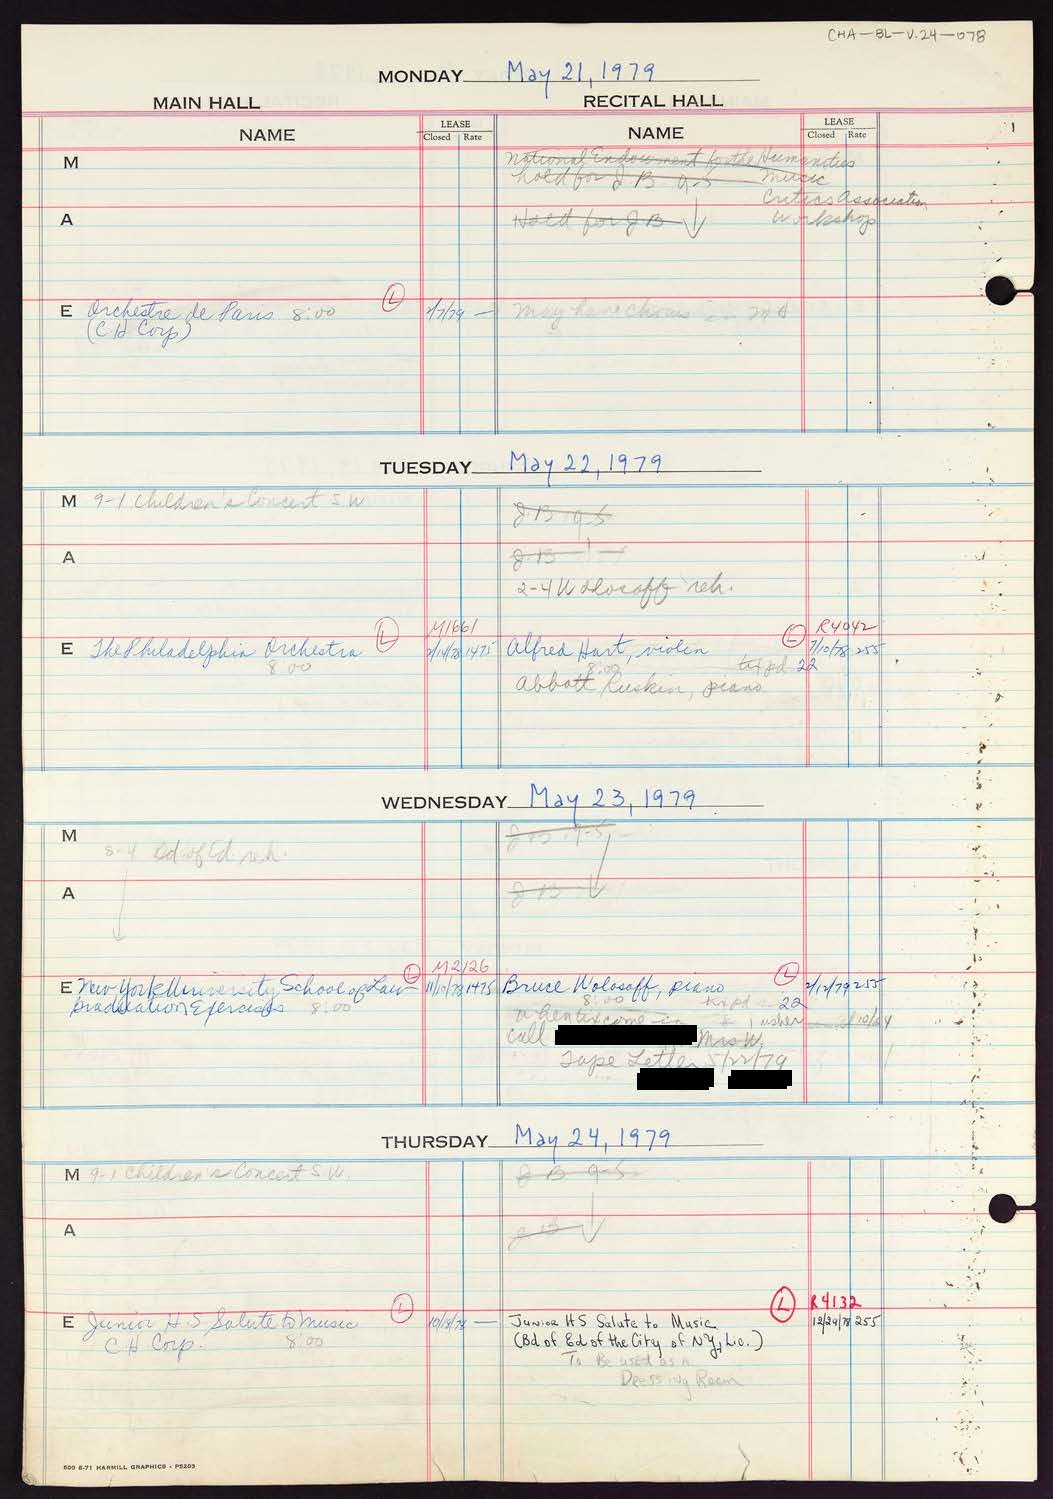 CHA-BL-V.24-078
MONDAY May 21, 1979
MAIN HALL
RECITAL HALL
NAME
LEASE
Closed Rate
NAME
LEASE
Closed Rate
1
M
National Endowment for the Humanities
hold for J B 9-5 Music
Critics Association
A
Hold for J B Workshop
E Orchestre de Paris 8:00 L
(C H Corp)
/7/79 —
May have chorus
TUESDAY May 22, 1979
M 9-1 Children's Concert S W
J B 9-5
A
J B
2-4 Wolosoff reh.
E The Philadelphia Orchestra L
8:00
M1661
2/14/78 1475
Alfred Hart, violin L
8:00 tix pd 22
Abbott Ruskin, piano
R4042
7/10/78 255
WEDNESDAY May 23, 1979
M
8-4 Bd of Ed. reh.
J B 9-5
A
J B
E New York University School of Law L
Graduation Exercises 8:00
M2126
11/10/78 1475
Bruce Wolosoff, piano L
8:00 tix pd 22
2/12/79 255
when tix come in 1 usher
call Mrs W.
Tape Letter 5/22/79
THURSDAY May 24, 1979
M 9-1 Children's Concert S W.
J B 9-5
A
J B
E Junior H S Salute to Music L
C H Corp. 8:00
10/18/78 —
Junior HS Salute to Music L
(Bd of Ed of the City of NY, Lic.)
To Be used as a
Dressing Room
R4132
12/29/78 255
500 6-71 HARMILL GRAPHICS - P5203